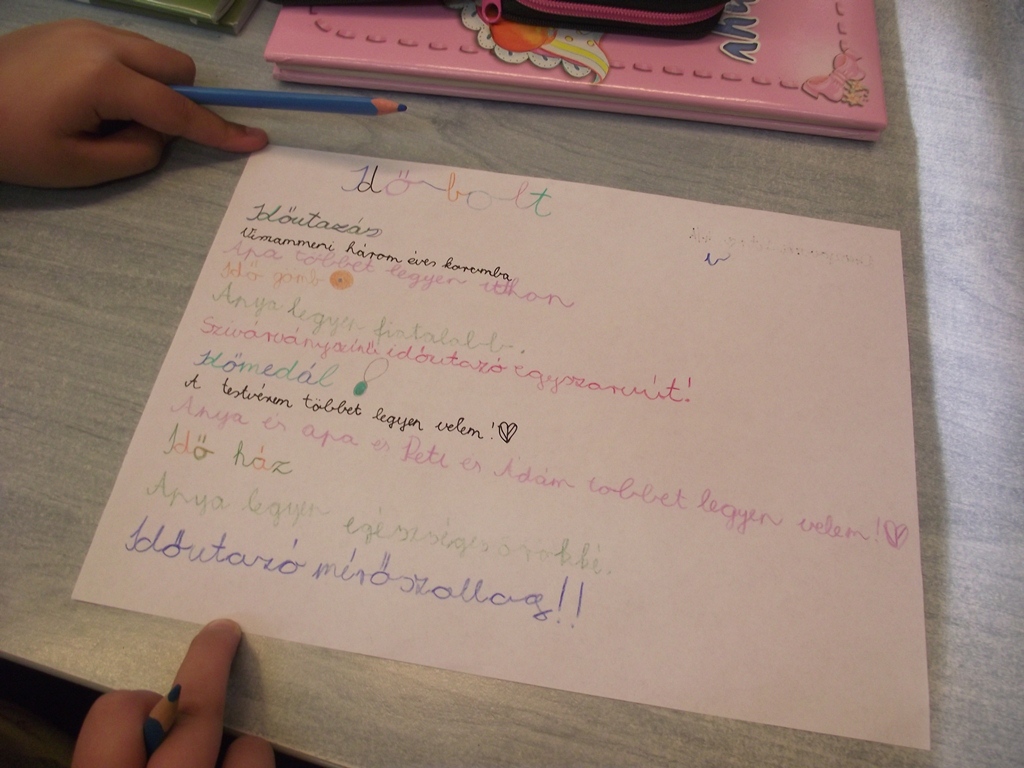 Időbolt
Időutazás
Visszammeni három éves koromba
Apa többet legyen itthon
Idő gomb
Anya legyen fiatalabb.
Szivárványszínű időutazó egyszarvút!
Időmedál
A testvérem többet legyen velem!
Anya és apa és Peti és Ádám többet legyen velem!
Idő ház
Anya legyen egészséges örökké.
Időutazó mérőszallag!!